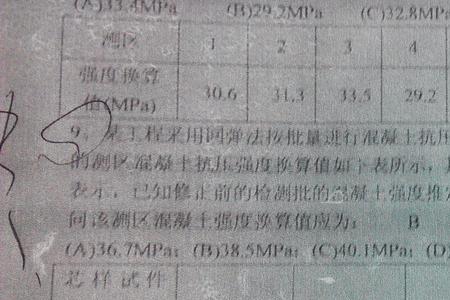 (A)33.4MPa (B)29.2MPa (C)32.8MPa
测区 1 2 3 4
强度换算
值(MPa) 30.6 31.3 33.5 29.2
9、某工程采用回弹法按批量进行混凝土抗压
的测区混凝土抗压强度换算值如下表所示,
表示,已知修正前的检测批的混凝土强度推定
问该测区混凝土强度换算值应为: B
(A)36.7MPa; (B)38.5MPa; (C)40.1MPa; (D)
芯样试件